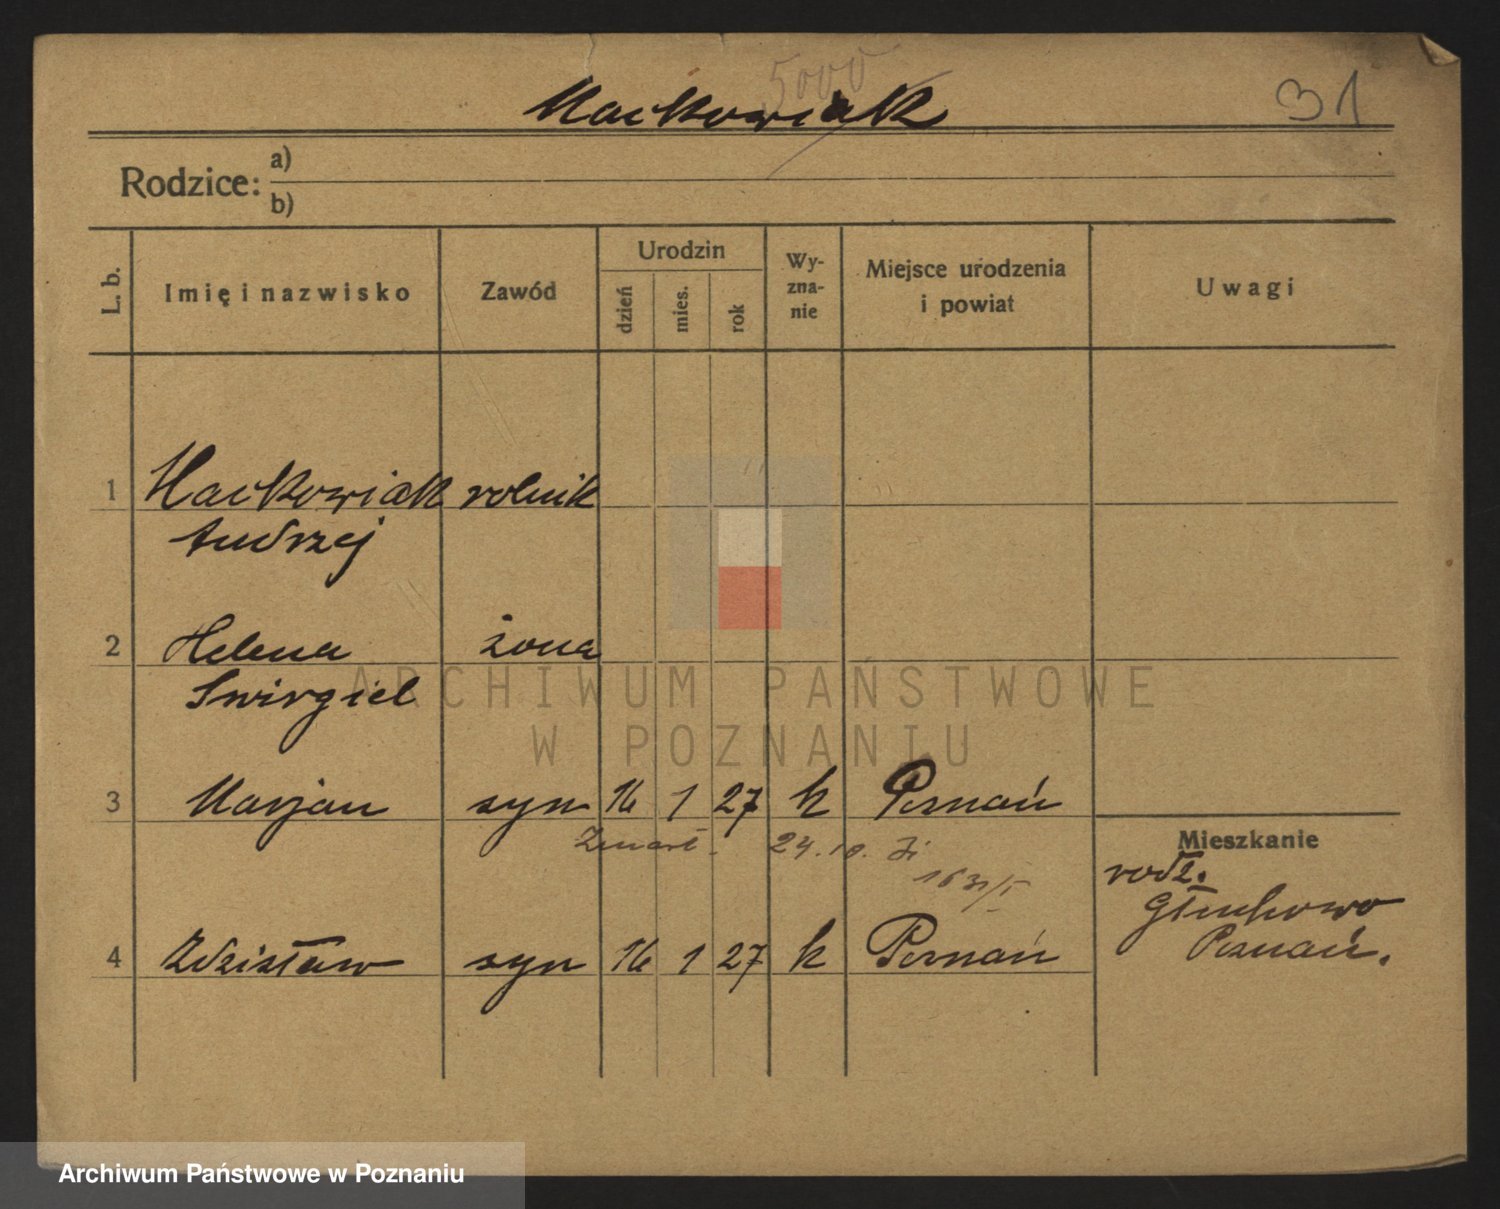 5000
Mackowiak 31
Rodzice: a)
b)
L. b. Imię i nazwisko Zawód Urodzin dzień mies. rok Wy-zna-nie Miejsce urodzenia i powiat Uwagi
1 Mackowiak rolnik
Andrzej
2 Helena żona
Swirgiel
ARCHIWUM PAŃSTWOWE
W POZNANIU
3 Marjan syn 16 1 27 k Poznań
Zmarł. 24.10.
Mieszkanie
rodz.
Głuchowo
Poznań.
4 Zdzisław syn 16 1 27 k Poznań
Archiwum Państwowe w Poznaniu